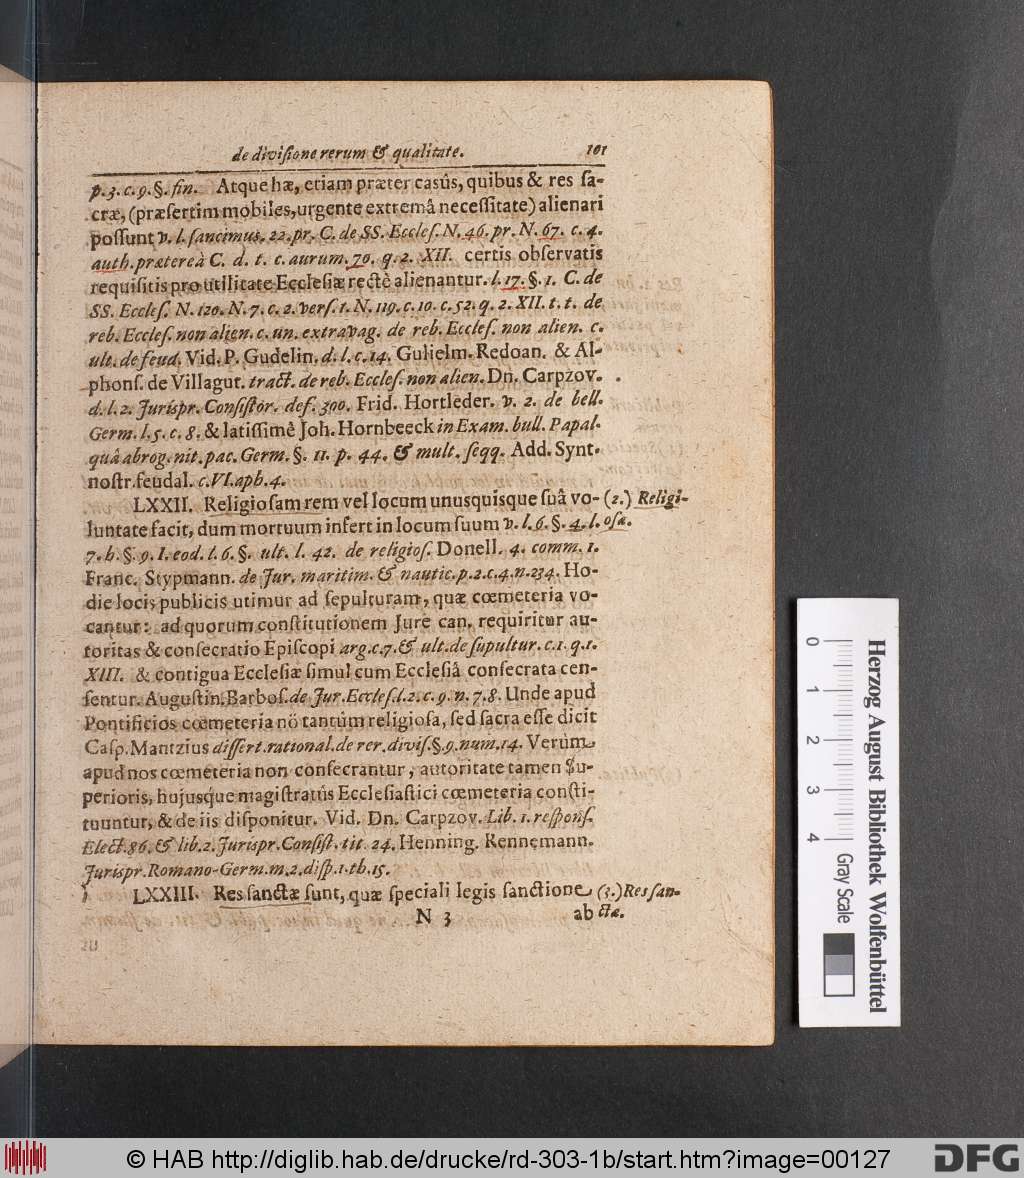 de divisione rerum & qualitate. 101
p. 3. c. 9. §. fin. Atque hæ, etiam præter casûs, quibus & res sa-
cræ, (præsertim mobiles, urgente extremâ necessitate) alienari
possunt v. l. sancimus. 22. pr. C. de SS. Eccles. N. 46. pr. N. 67. c. 4.
auth. prætereà C. d. t. c. aurum. 70. q. 2. XII. certis observatis
requisitis pro utilitate Ecclesiæ rectè alienantur. l. 17. §. 1. C. de
SS. Eccles. N. 120. N. 7. c. 2. vers. 1. N. 119. c. 10. c. 52. q. 2. XII. t. t. de
reb. Eccles. non alien. c. un. extravag. de reb. Eccles. non alien. c.
ult. de feud. Vid. P. Gudelin. d. l. c. 14. Gulielm. Redoan. & Al-
phons. de Villagut. tract. de reb. Eccles. non alien. Dn. Carpzov.
d. l. 2. Jurispr. Consistor. def. 300. Frid. Hortleder. v. 2. de bell.
Germ. l. 5. c. 8. & latissimê Joh. Hornbeeck in Exam. bull. Papal.
quâ abrog. nit. pac. Germ. §. 11. p. 44. & mult. seqq. Add. Synt.
nostr. feudal. c. VI. aph. 4.
LXXII. Religiosam rem vel locum unusquisque suâ vo-
luntate facit, dum mortuum infert in locum suum v. l. 6. §. 4. l.
(2.) Religi-
osæ.
7. h. §. 9. I. eod. l. 6. §. ult. l. 42. de religios. Donell. 4. comm. 1.
Franc. Stypmann. de Jur. maritim. & nautic. p. 2. c. 4. n. 234. Ho-
die locis publicis utimur ad sepulturam, quæ cœmeteria vo-
cantur: ad quorum constitutionem Jure can. requiritur au-
toritas & consecratio Episcopi arg. c. 7. & ult. de supultur. c. 1. q. 1.
XIII. & contigua Ecclesiæ simul cum Ecclesiâ consecrata cen-
sentur. Augustin. Barbos. de Jur. Eccles. l. 2. c. 9. n. 7. 8. Unde apud
Pontificios cœmeteria nō tantùm religiosa, sed sacra esse dicit
Casp. Mantzius dissert. rational. de rer. divis. §. 9. num. 14. Verùm
apud nos cœmeteria non consecrantur, autoritate tamen Su-
perioris, hujusque magistratûs Ecclesiastici cœmeteria consti-
tuuntur, & de iis disponitur. Vid. Dn. Carpzov. Lib. 1. respons.
Elect. 86. & lib. 2. Jurispr. Consist. tit. 24. Henning. Rennemann.
Jurispr. Romano-Germ. m. 2. disp. 1. th. 15.
LXXIII. Res sanctæ sunt, quæ speciali legis sanctione
(3.) Res san-
ctæ.
N 3 ab
Herzog August Bibliothek Wolfenbüttel
0 1 2 3 4 Gray Scale
© HAB http://diglib.hab.de/drucke/rd-303-1b/start.htm?image=00127
DFG